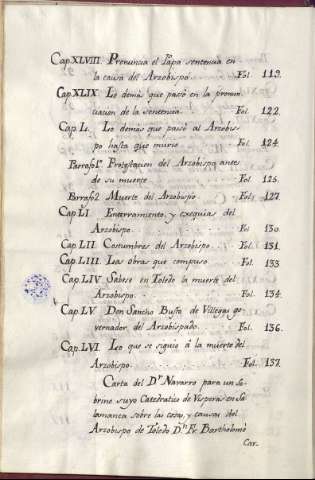 Cap. XLVIII. Pronuncia el Papa sentencia en
la causa del Arzobispo. Fol. 119.
Cap. XLIX. Lo demás que pasó en la pronun-
ciacion de la sentencia. Fol. 122.
Cap. L. Lo demas que pasó al Arzobis-
po hasta que murio. Fol. 124.
Parrafo 1º Protestacion del Arzobispo antes
de su muerte. Fol. 125.
Parrafo 2 Muerte del Arzobispo. Fol. 127.
Cap. LI. Enterramiento, y exequias del
Arzobispo. Fol. 130.
Cap. LII. Costumbres del Arzobispo. Fol. 131.
Cap. LIII. Las obras que compuso. Fol. 133.
Cap. LIV. Sabese en Toledo la muerte del
Arzobispo. Fol. 134.
Cap. LV. Don Sancho Busto de Villegas go-
vernador del Arzobispado. Fol. 136.
Cap. LVI. Lo que se siguió á la muerte del
Arzobispo. Fol. 137.
Carta del Dr. Navarro para un So-
brino suyo Catedratico de Visperas en Sa-
lamanca sobre las cosas, y causas del
Arzobispo de Toledo Dn. Fr. Bartholomé
Car.